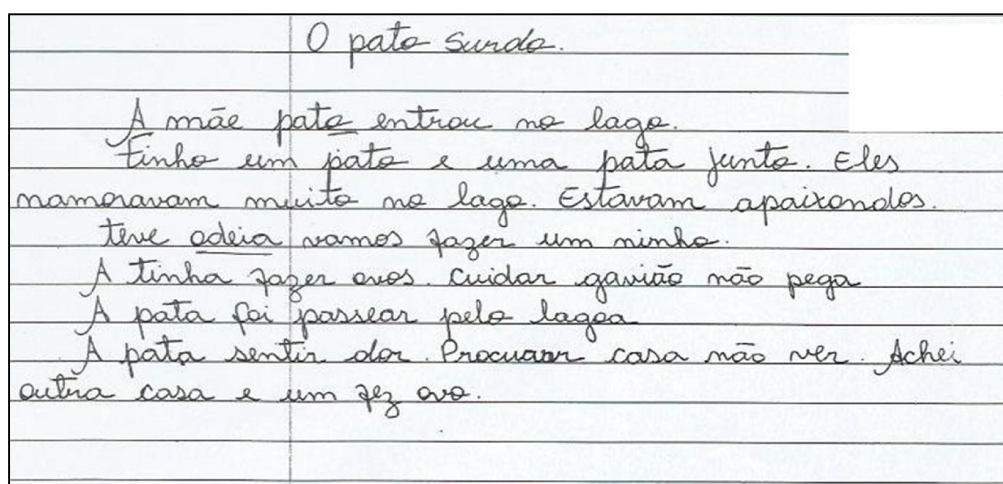 O pato surdo.
A mãe pato entrou no lago.
tinho um pato e uma pata junto. Eles
namoravam muito no lago. Estavam apaixondos.
teve odeia vamos fazer um ninho.
A tinha fazer ovos. cuidar gavião não pega
A pata foi passear pelo lagoa
A pata sentir dor. Procuam casa não ver. Achei
outra casa e um fez ovo.